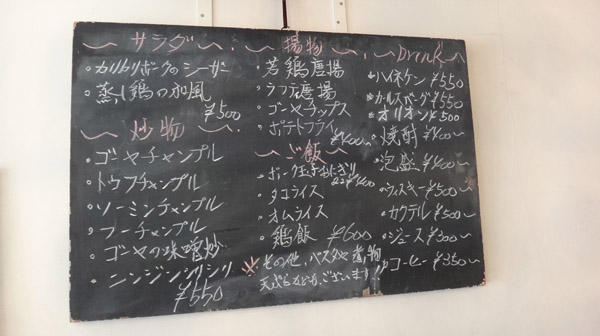 サラダ
・カリカリポークのシーザー
・蒸し鶏の和風
¥500
炒物
・ゴーヤチャンプル
・トウフチャンプル
・ソーミンチャンプル
・フーチャンプル
・ゴーヤの味噌炒
・ニンジンシリシリ
¥550
揚物
・若鶏唐揚
・ラフテー唐揚
・ゴーヤチップス
・ポテトフライ
¥400〜
ご飯
・ポーク玉子おにぎり
2コ ¥400
・タコライス
・オムライス
・鶏飯 ¥600
※その他、パスタや煮物
天ぷらなども、ございます!!
Drink
・ハイネケン ¥550
・カールスバーグ ¥550
・オリオン ¥500
・焼酎 ¥400〜
・泡盛 ¥400〜
・ウィスキー ¥500〜
・カクテル ¥500〜
・ジュース ¥300〜
・コーヒー ¥350〜